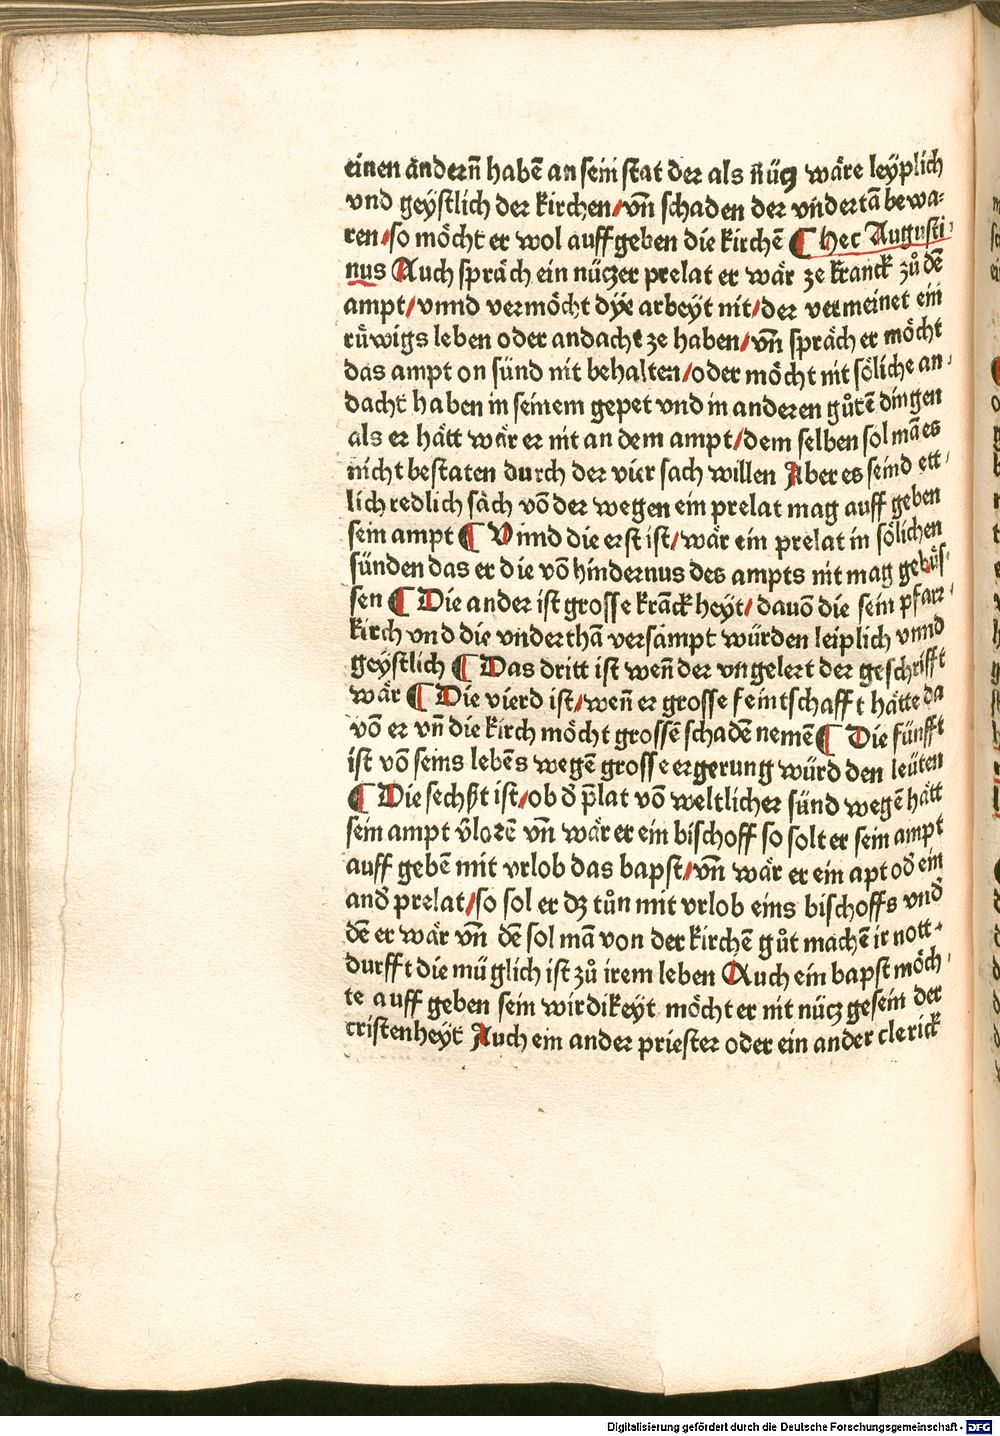 einen andern̄ habē an sein stat der als nücz wäre leÿplich
vnd geÿstlich der kirchen/vn̄ schaden der vndertā bewa-
ren/so möcht er wol auffgeben die kirchē ¶ hec Augusti-
nus Auch spräch ein nüczer prelat er wär ze kranck zů dē
ampt/vnnd vermöcht dÿe arbeyt nit/der vermeinet ein
růwigs leben oder andacht ze haben/vn̄ spräch er möcht
das ampt on sünd nit behalten/oder möcht nit söliche an-
dacht haben in seinem gepet vnd in anderen gůtē dingen
als er hätt wär er nit an dem ampt/dem selben sol mā es
nicht bestaten durch der vier sach willen Aber es seind ett-
lich redlich säch vō der wegen ein prelat mag auff geben
sein ampt ¶ Vnnd die erst ist/wär ein prelat in sölichen
sünden das er die vō hindernus des ampts nit mag gebůs-
sen ¶ Die ander ist grosse krāckheyt/dauō die sein pfarr-
kirch vnd die vnderthā versampt würden leiplich vnnd
geÿstlich ¶ Das dritt ist wen̄ der vngelert der geschrifft
wär ¶ Die vierd ist/wen̄ er grosse feintschafft hätte da
vō er vn̄ die kirch möcht grossē schadē nemē ¶ Die fünfft
ist vō seins lebēs wegē grosse ergerung würd den leüten
¶ Die sechßt ist/ob d̄ p̄lat vō weltlicher sünd wegē hätt
sein ampt v̄lorē vn̄ wär er ein bischoff so solt er sein ampt
auff gebē mit vrlob das bapst/vn̄ wär er ein apt od̄ ein
and̄ prelat/so sol er dz tůn mit vrlob eins bischoffs vnd̄
dē er wär vn̄ dē sol mā von der kirchē gůt machē ir nott-
durfft die müglich ist zů irem leben Auch ein bapst möch-
te auff geben sein wirdikeyt möcht er nit nücz gesein der
cristenheyt Auch ein ander priester oder ein ander clerick
Digitalisierung gefördert durch die Deutsche Forschungsgemeinschaft - DFG